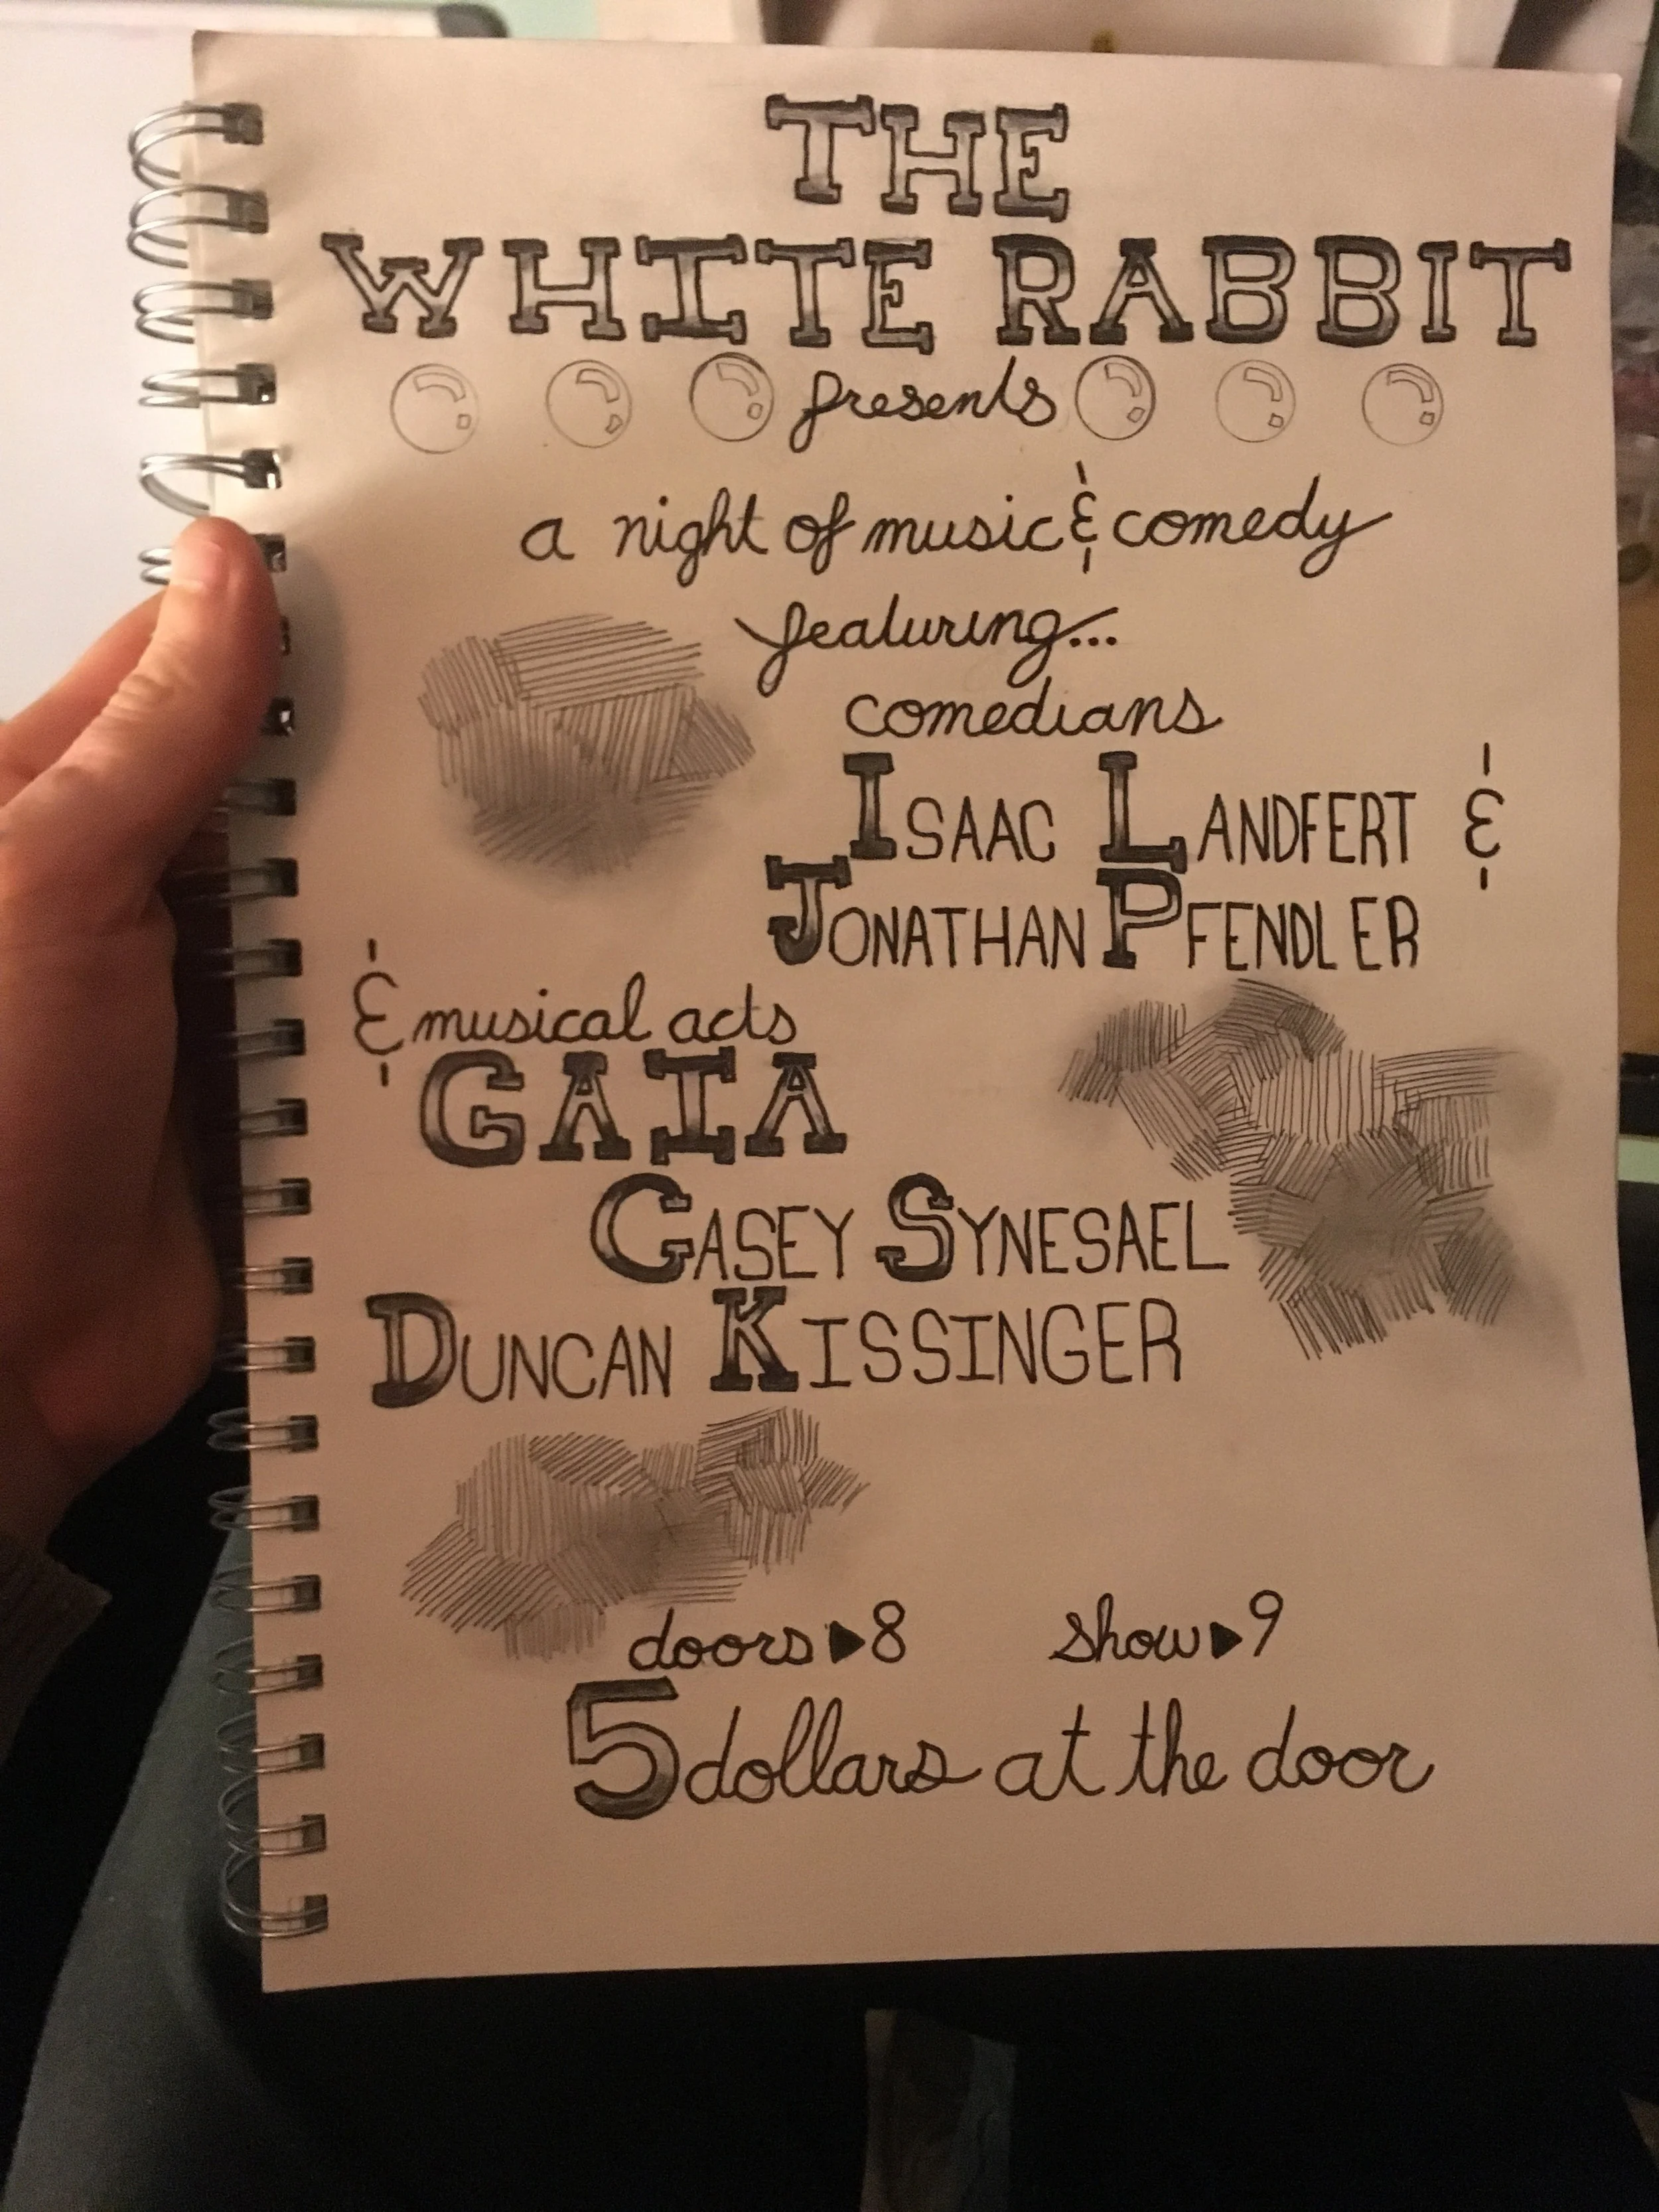 THE
WHITE RABBIT
presents
a night of music & comedy
featuring...
comedians
ISAAC LANDFERT &
JONATHAN PFENDLER
& musical acts
GAIA
CASEY SYNESAEL
DUNCAN KISSINGER
doors ▶ 8 show ▶ 9
5 dollars at the door